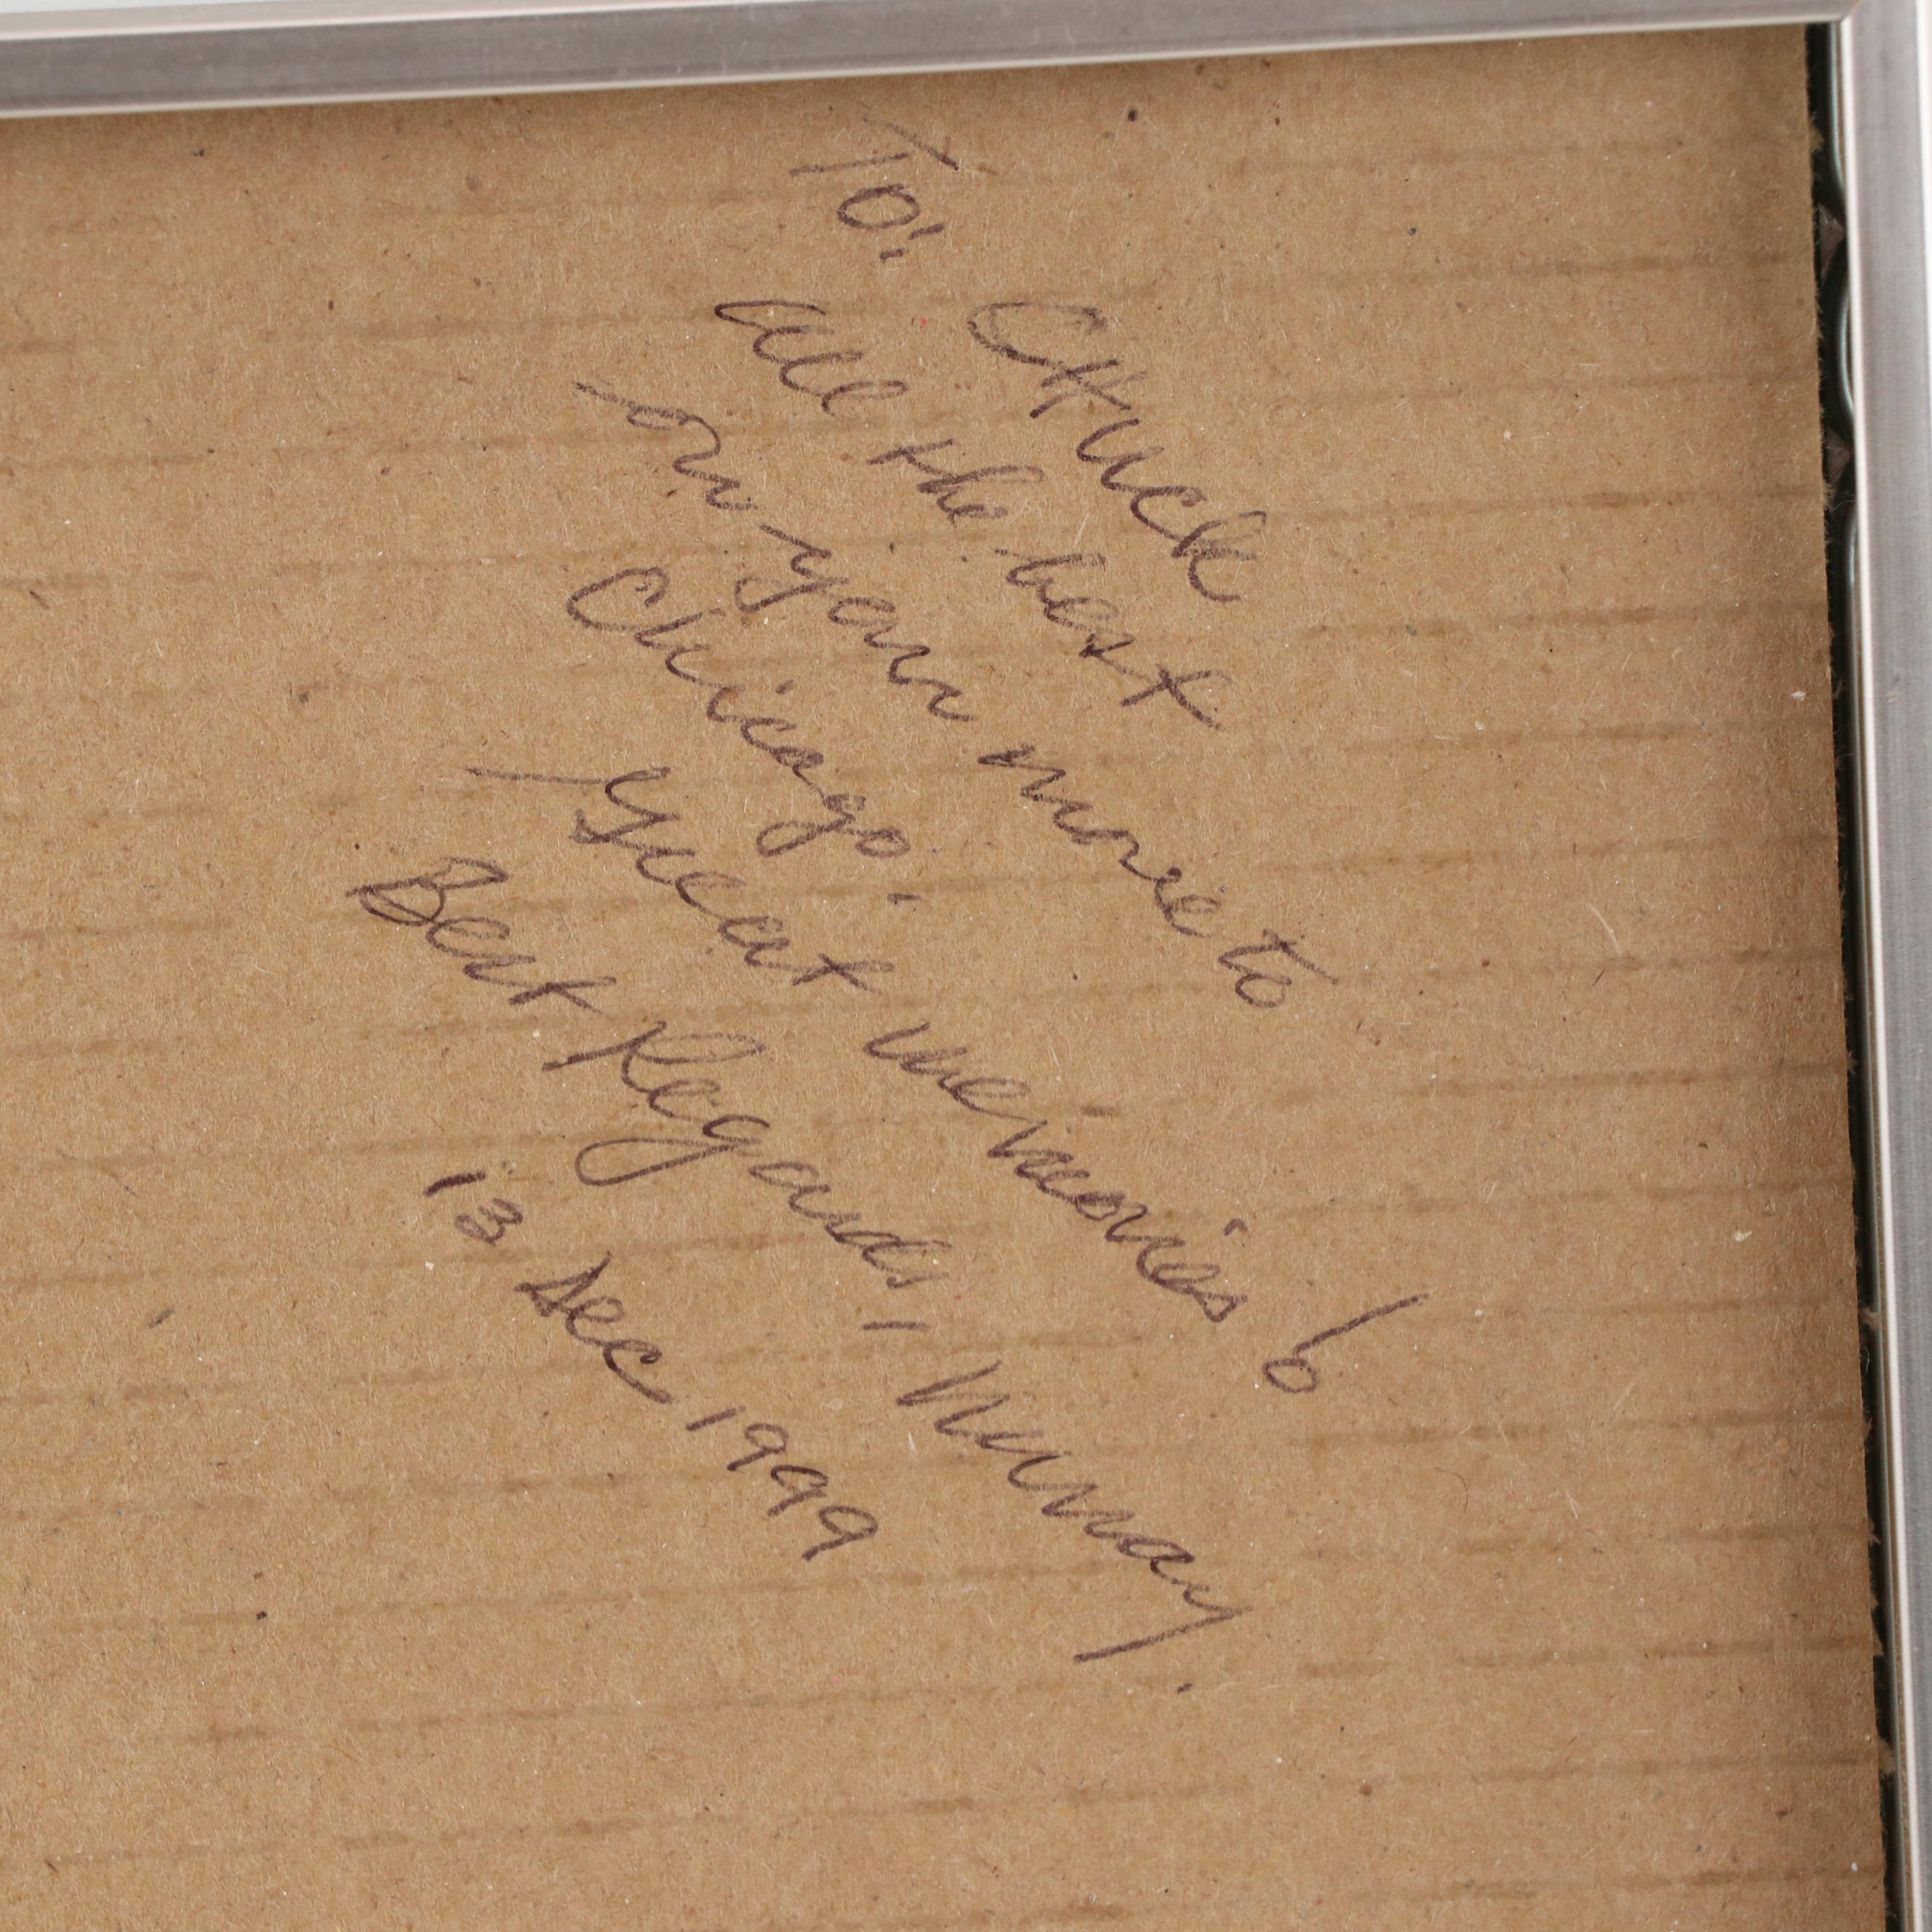 To:
Chuck
all the best
on your move to
Chicago.
Great memories!
Best Regards, Murray.
13 Dec 1999